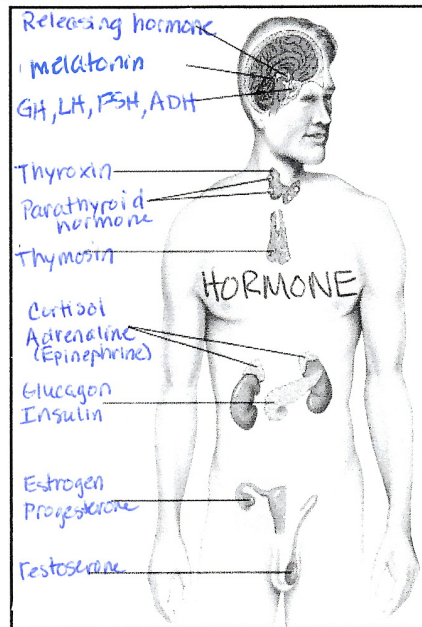 Releasing hormone
melatonin
GH, LH, FSH, ADH
Thyroxin
Parathyroid
hormone
Thymosin
HORMONE
Cortisol
Adrenaline
(Epinephrine)
Glucagon
Insulin
Estrogen
Progesterone
Testoserone